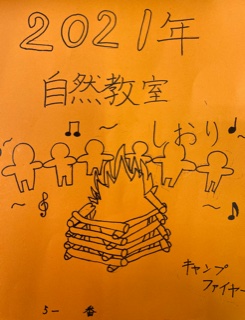 2021年
自然教室
しおり
キャンプ
ファイヤー
5-　番